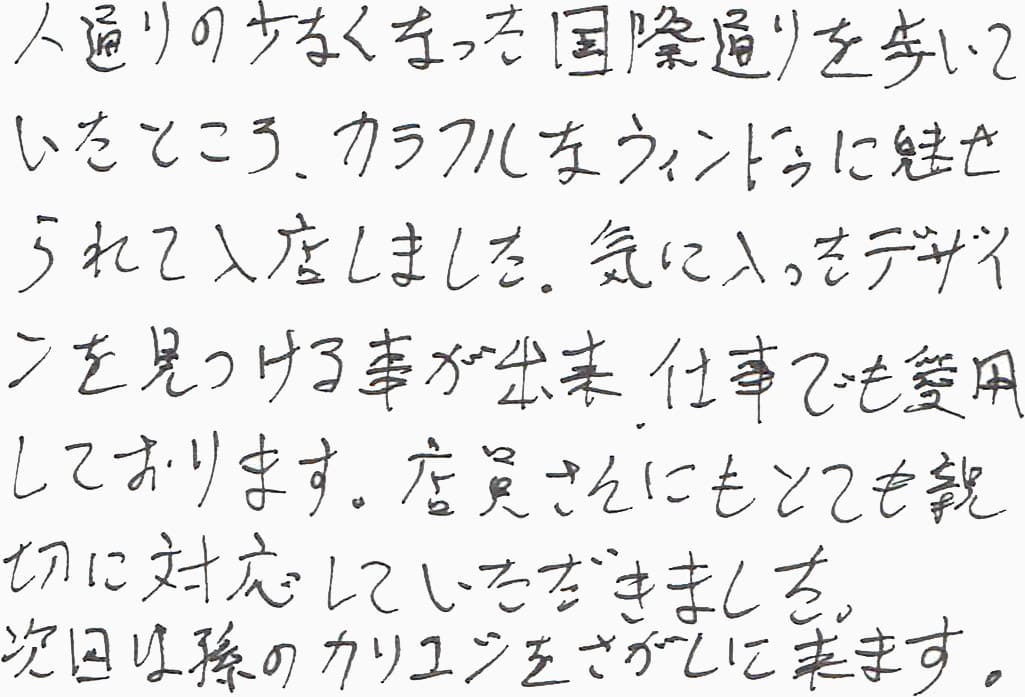 人通りの少なくなった国際通りを歩いて
いたところ、カラフルなウィンドウに魅せ
られて入店しました。気に入ったデザイ
ンを見つける事が出来、仕事でも愛用
しております。店員さんにもとても親
切に対応していただきました。
次回は孫のカリユシをさがしに来ます。